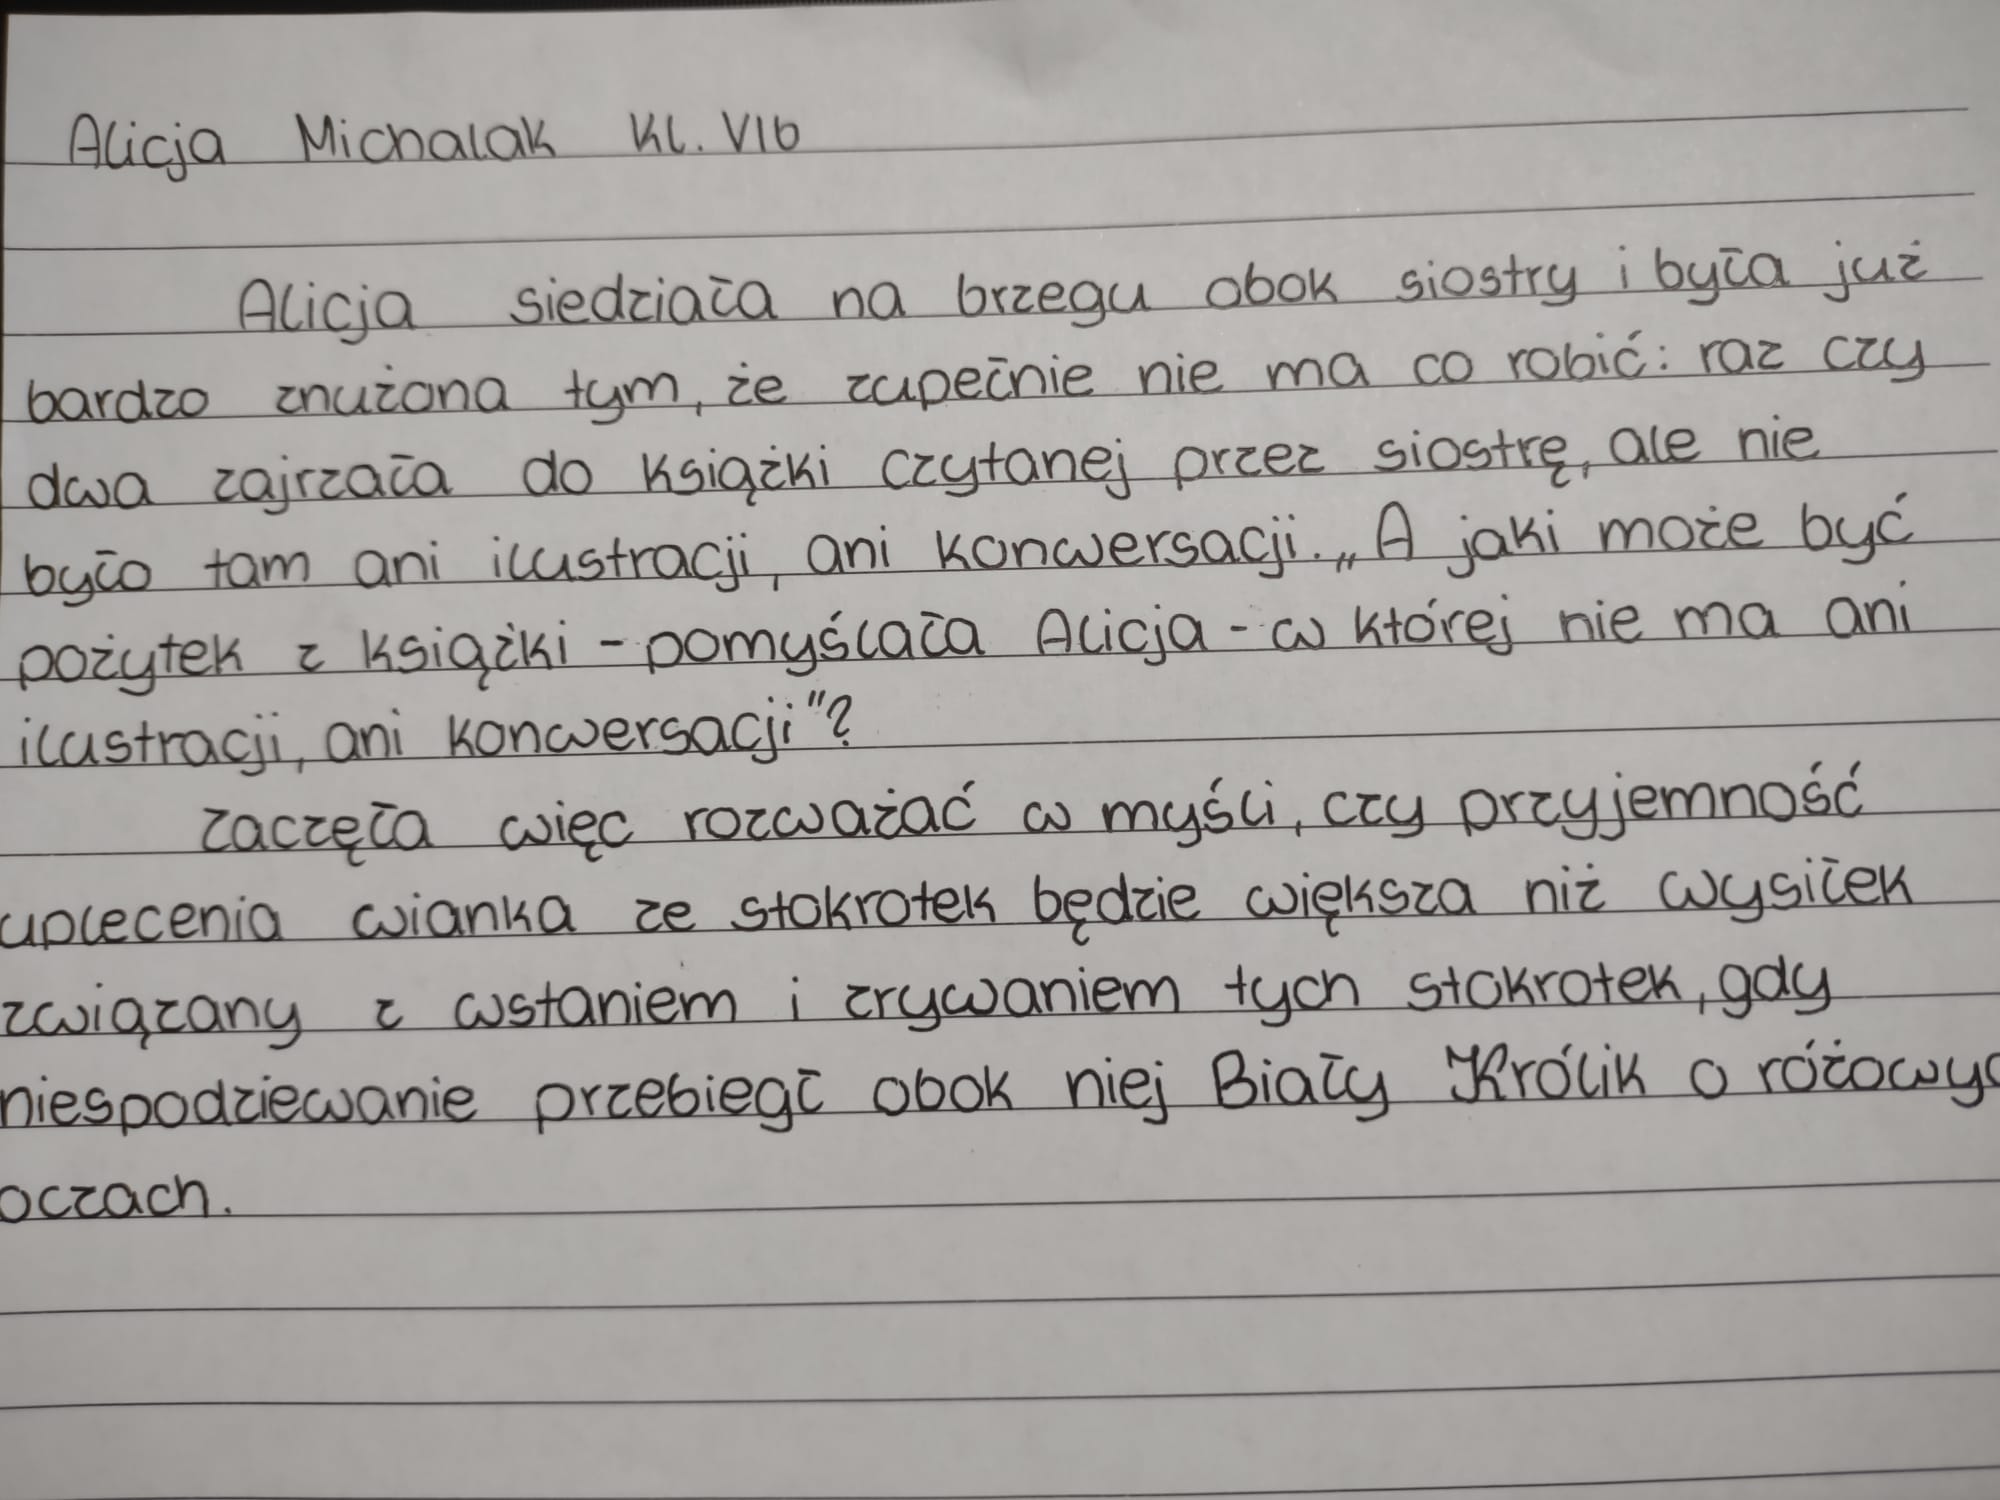 Alicja Michalak Kl. VIb
Alicja siedziała na brzegu obok siostry i była już
bardzo znużona tym, że zupełnie nie ma co robić: raz czy
dwa zajrzała do książki czytanej przez siostrę, ale nie
było tam ani ilustracji, ani konwersacji. „A jaki może być
pożytek z książki - pomyślała Alicja - w której nie ma ani
ilustracji, ani konwersacji"?
Zaczęła więc rozważać w myśli, czy przyjemność
uplecenia wianka ze stokrotek będzie większa niż wysiłek
związany z wstaniem i zrywaniem tych stokrotek, gdy
niespodziewanie przebiegł obok niej Biały Królik o różowyc
oczach.